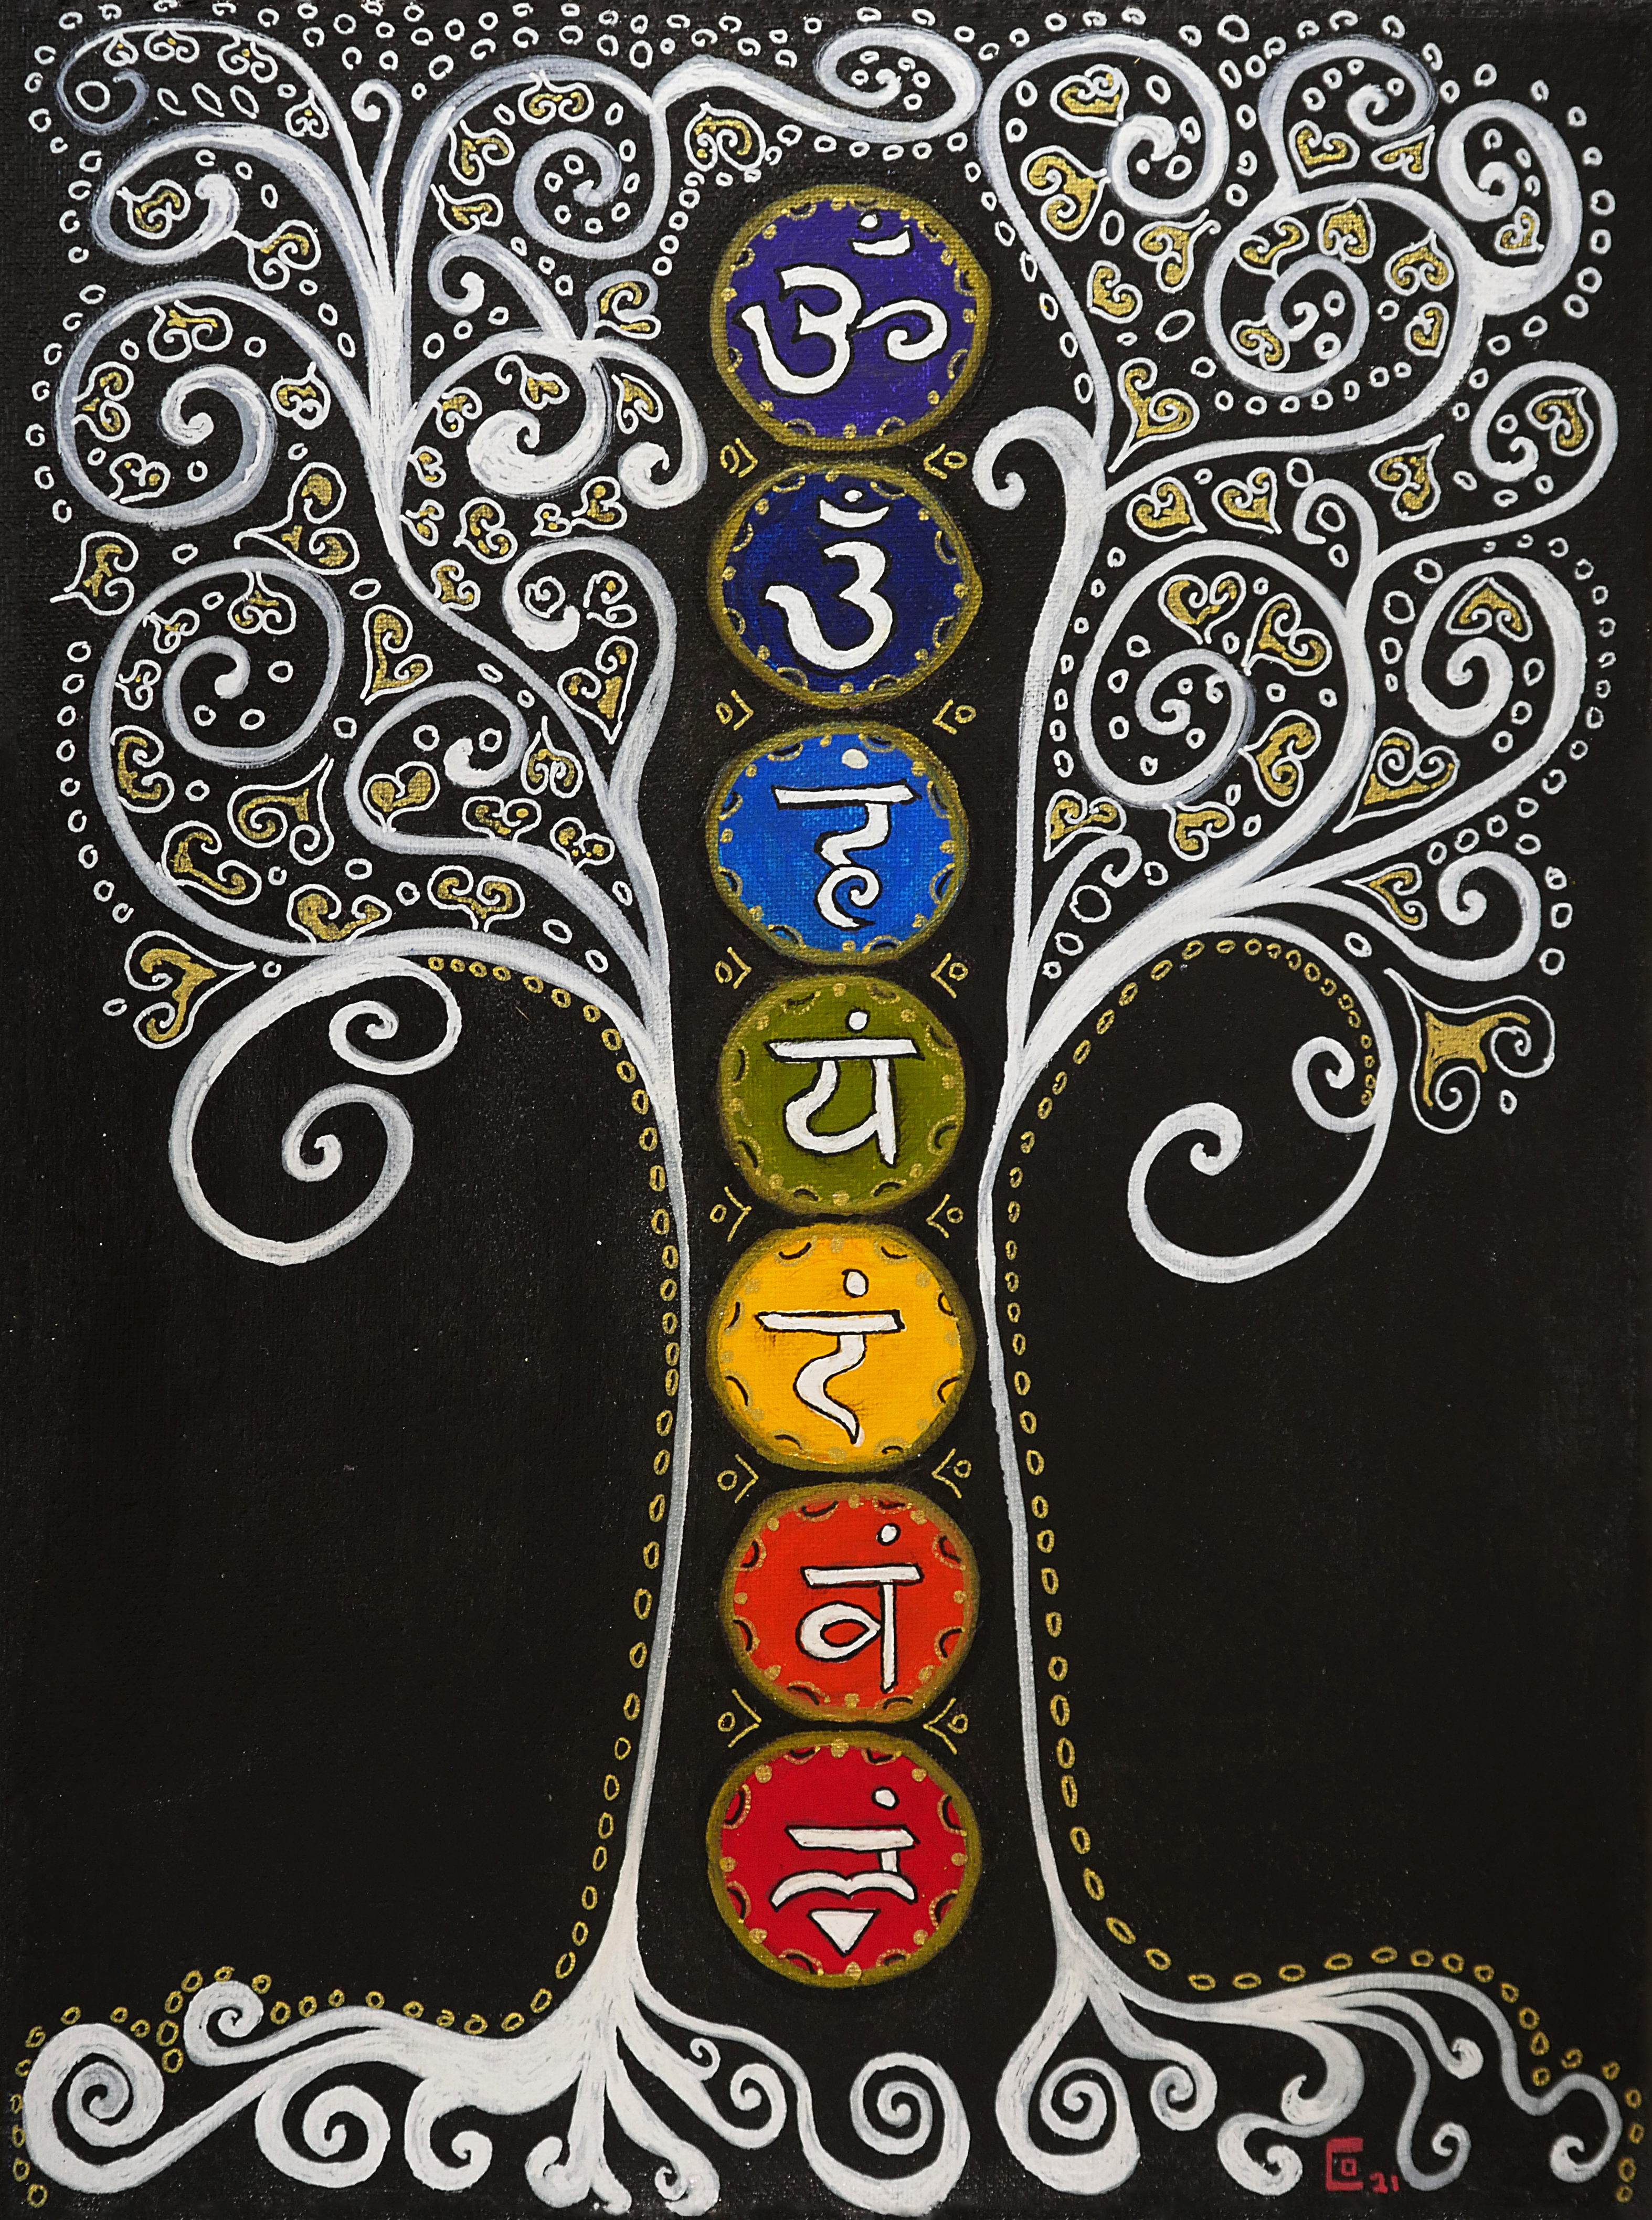 ॐ
उँ
हं
यं
रं
वं
लं
21